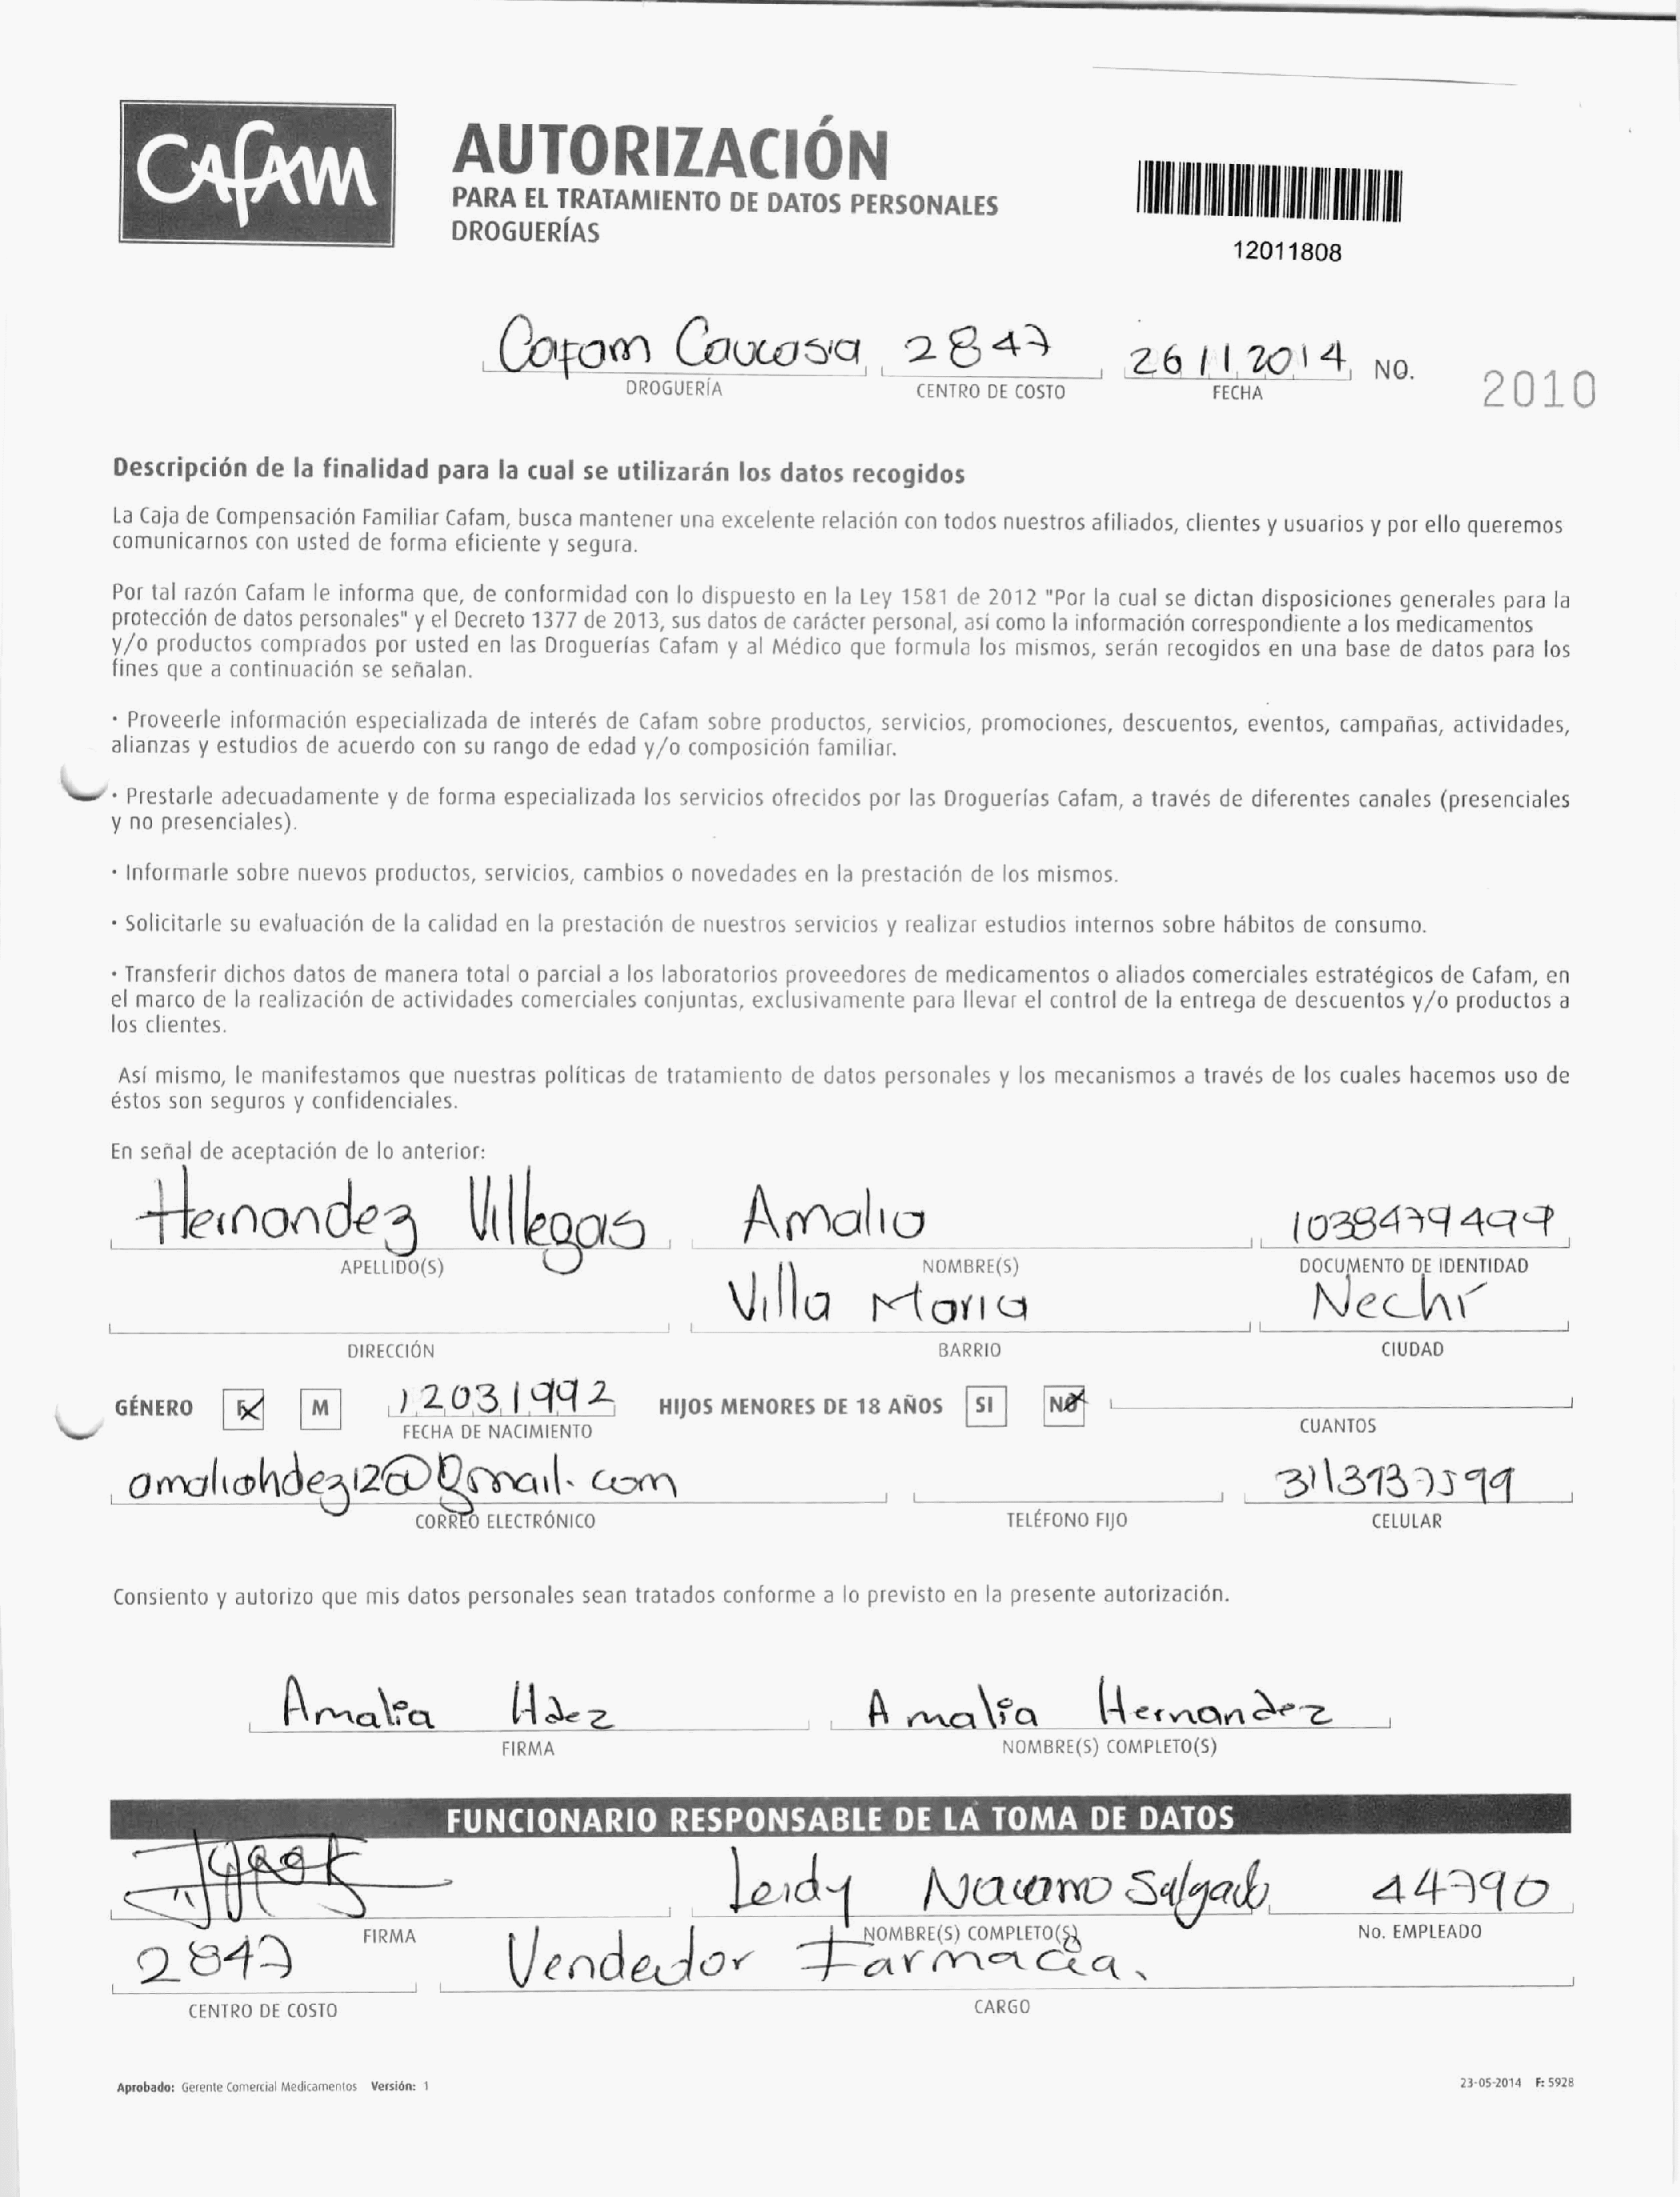 CAFAM
AUTORIZACIÓN
PARA EL TRATAMIENTO DE DATOS PERSONALES
DROGUERÍAS
12011808
Cafam Caucasia 2847 26 11 2014 NO. 2010
DROGUERÍA CENTRO DE COSTO FECHA
Descripción de la finalidad para la cual se utilizarán los datos recogidos
La Caja de Compensación Familiar Cafam, busca mantener una excelente relación con todos nuestros afiliados, clientes y usuarios y por ello queremos
comunicarnos con usted de forma eficiente y segura.
Por tal razón Cafam le informa que, de conformidad con lo dispuesto en la Ley 1581 de 2012 "Por la cual se dictan disposiciones generales para la
protección de datos personales" y el Decreto 1377 de 2013, sus datos de carácter personal, así como la información correspondiente a los medicamentos
y/o productos comprados por usted en las Droguerías Cafam y al Médico que formula los mismos, serán recogidos en una base de datos para los
fines que a continuación se señalan.
· Proveerle información especializada de interés de Cafam sobre productos, servicios, promociones, descuentos, eventos, campañas, actividades,
alianzas y estudios de acuerdo con su rango de edad y/o composición familiar.
· Prestarle adecuadamente y de forma especializada los servicios ofrecidos por las Droguerías Cafam, a través de diferentes canales (presenciales
y no presenciales).
· Informarle sobre nuevos productos, servicios, cambios o novedades en la prestación de los mismos.
· Solicitarle su evaluación de la calidad en la prestación de nuestros servicios y realizar estudios internos sobre hábitos de consumo.
· Transferir dichos datos de manera total o parcial a los laboratorios proveedores de medicamentos o aliados comerciales estratégicos de Cafam, en
el marco de la realización de actividades comerciales conjuntas, exclusivamente para llevar el control de la entrega de descuentos y/o productos a
los clientes.
Así mismo, le manifestamos que nuestras políticas de tratamiento de datos personales y los mecanismos a través de los cuales hacemos uso de
éstos son seguros y confidenciales.
En señal de aceptación de lo anterior:
Hernandez Villegas Amalia 1038479499
APELLIDO(S) NOMBRE(S) DOCUMENTO DE IDENTIDAD
Villa Maria Nechí
DIRECCIÓN BARRIO CIUDAD
GÉNERO F M 12031992 HIJOS MENORES DE 18 AÑOS SI NO
FECHA DE NACIMIENTO CUANTOS
amaliahdez12@gmail.com 3113737599
CORREO ELECTRÓNICO TELÉFONO FIJO CELULAR
Consiento y autorizo que mis datos personales sean tratados conforme a lo previsto en la presente autorización.
Amalia Hdez Amalia Hernandez
FIRMA NOMBRE(S) COMPLETO(S)
FUNCIONARIO RESPONSABLE DE LA TOMA DE DATOS
Leidy Navarro Salgado 44790
FIRMA NOMBRE(S) COMPLETO(S) No. EMPLEADO
2847 Vendedor Farmacia.
CENTRO DE COSTO CARGO
Aprobado: Gerente Comercial Medicamentos Versión: 1 23-05-2014 F: 5928